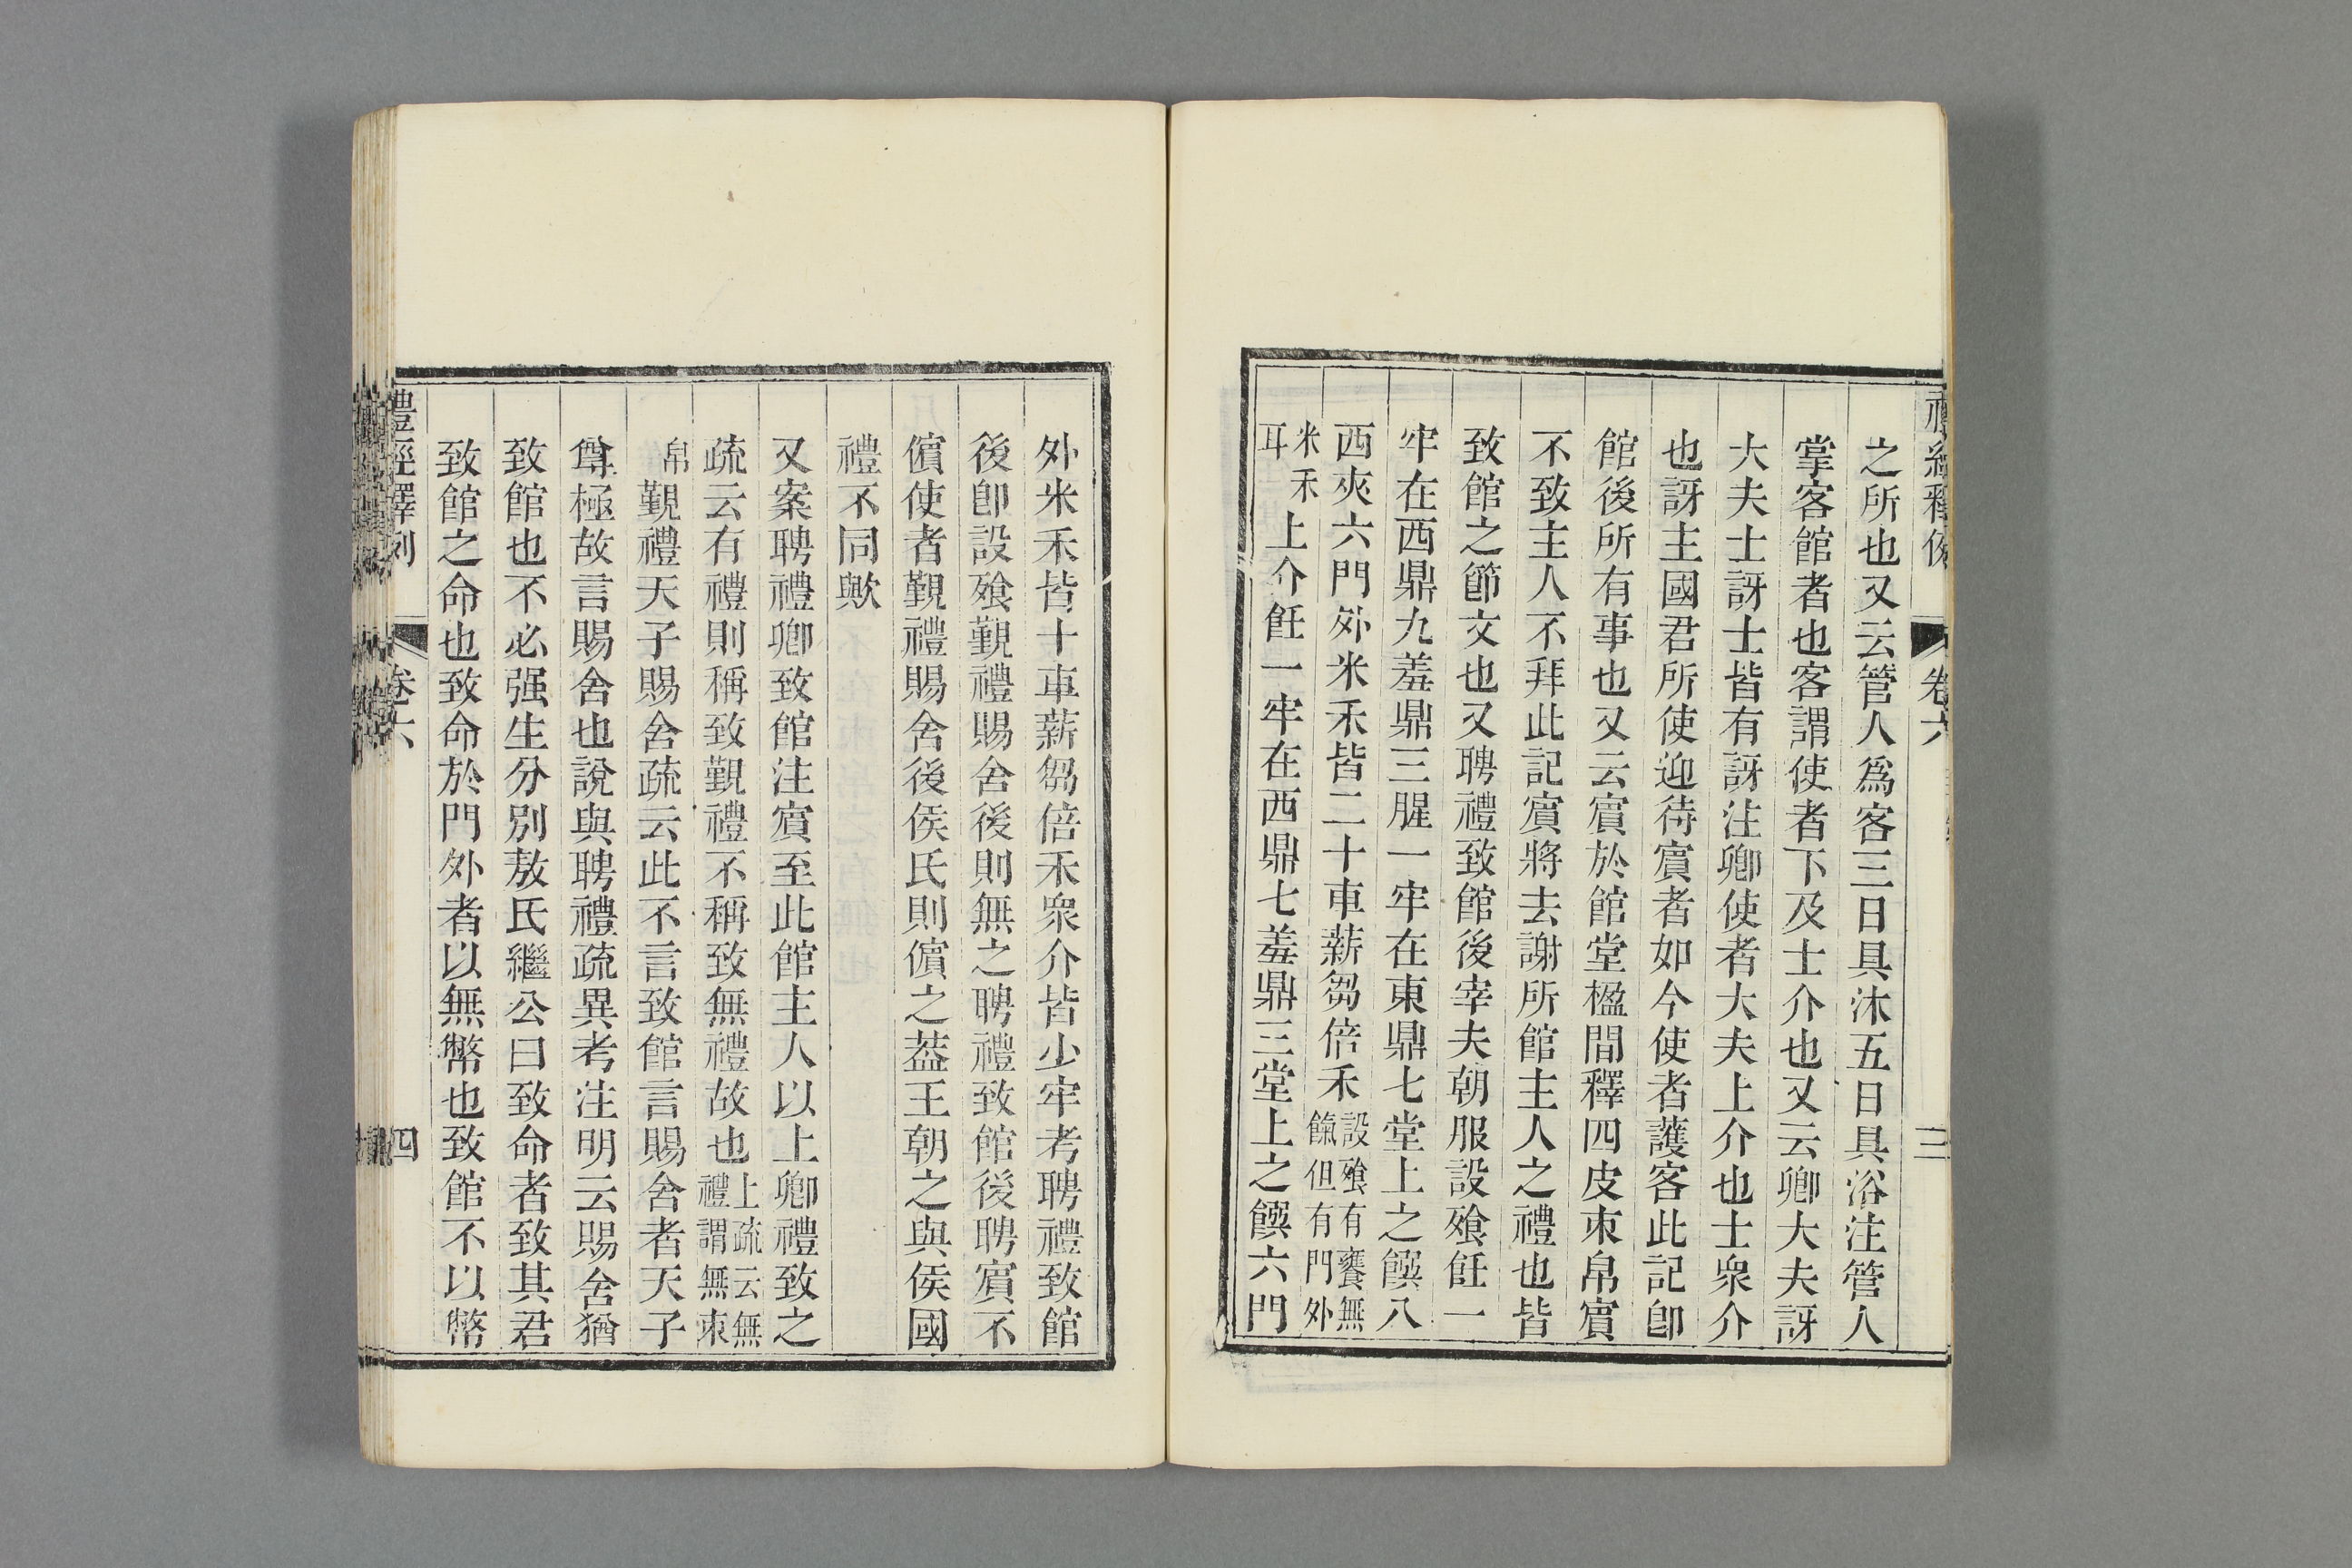 禮經釋例 卷六 三
之所也又云管人爲客三日具沐五日具浴注管人
掌客館者也客謂使者下及士介也又云卿大夫訝
大夫士訝士皆有訝注卿使者大夫上介也士衆介
也訝主國君所使迎待賔者如今使者護客此記卽
館後所有事也又云賔於館堂楹間釋四皮束帛賔
不致主人不拜此記賔將去謝所館主人之禮也皆
致館之節文也又聘禮致館後宰夫朝服設飱飪一
牢在西鼎九羞鼎三腥一牢在東鼎七堂上之饌八
西夾六門外米禾皆二十車薪芻倍禾設飱有饔無餼但有門外
米禾耳上介飪一牢在西鼎七羞鼎三堂上之饌六門
外米禾皆十車薪芻倍禾衆介皆少牢考聘禮致館
後卽設飱覲禮賜舍後則無之聘禮致館後聘賔不
儐使者覲禮賜舍後侯氏則儐之葢王朝之與侯國
禮不同歟
又案聘禮卿致館注賔至此館主人以上卿禮致之
疏云有禮則稱致覲禮不稱致無禮故也上疏云無禮謂無束
帛覲禮天子賜舍疏云此不言致館言賜舍者天子
尊極故言賜舍也說與聘禮疏異考注明云賜舍猶
致館也不必强生分別敖氏繼公曰致命者致其君
致館之命也致命於門外者以無幣也致館不以幣
禮經釋例 卷六 四